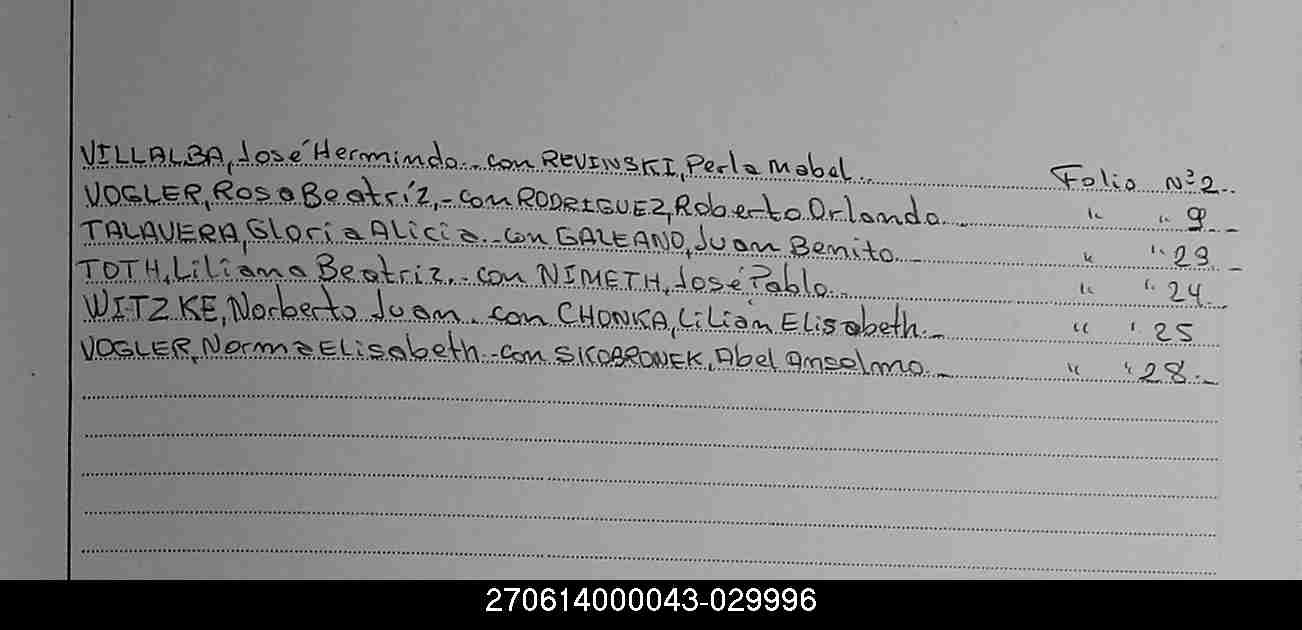 VILLALBA, José Hermindo.- con REVINSKI, Perla Mabel.. Folio Nº 2..
VOGLER, Rosa Beatríz,- con RODRIGUEZ, Roberto Orlando.- " " 9.-
TALAVERA, Gloria Alicia.- con GALEANO, Juan Benito.- " " 23.-
TOTH, Liliana Beatriz.- con NIMETH, José Pablo.- " " 24.-
WITZKE, Norberto Juan. con CHONKA, Lilián Elisabeth.- " " 25
VOGLER, Norma Elisabeth.- con SKOBRONEK, Abel Anselmo.- " " 28.-
270614000043-029996